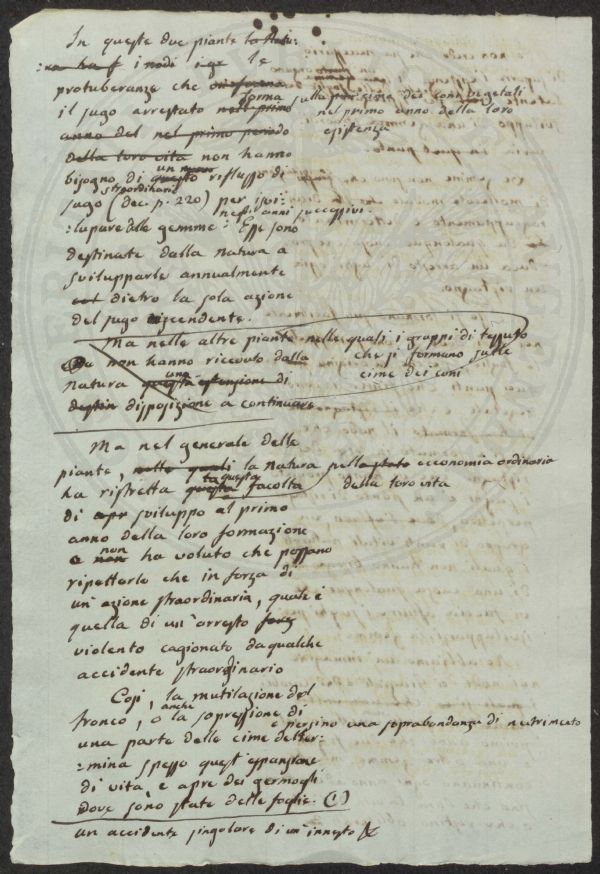 In queste due piante la Natu:
:ra ha f i nodi i ge le
protuberanze che
forma sulla cime dei coni vegetali
il sugo arrestato nell primo nel primo anno della loro
anno del nel primo periodo esistenza
della loro vita non hanno
un nuovo
bisogno di questo riflusso di
straordinario
sugo (dec. p. 220) per svi:
negli anni successivi.
:lupare delle gemme: Esse sono
destinate dalla natura a
svilupparle annualmente
col dietro la sola azione
del sugo ascendente.
Ma nelle altre piante nelle quali i gruppi di tessuto
Ma non hanno ricevuto dalla che si formano sulle
natura questa estensione di cime dei coni
una
destin disposizione a continuare
Ma nel generale delle
piante, nelle quali la natura nella stato economia ordinaria
ta questa
ha ristretta questa facoltà della loro vita
di apr sviluppo al primo
anno della loro formazione
non
e non ha voluto che possano
ripetterlo che in forza di
un' azione straordinaria, quale è
quella di un' arresto forz
violento cagionato da qualche
accidente straordinario
Così, la mutilazione del
anche
tronco, o la sopressione di
e persino una soprabondanza di nutrimento
una parte delle cime deter:
:mina spesso quest' espansione
di vita, e apre dei germogli
dove sono state delle foglie. (1)
un accidente singolare di un' innesto